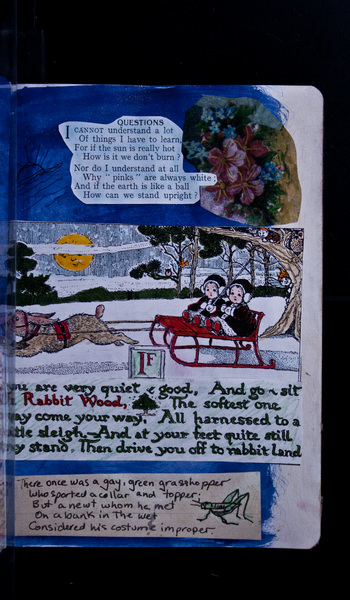 QUESTIONS
I CANNOT understand a lot
Of things I have to learn,
For if the sun is really hot
How is it we don't burn?
Nor do I understand at all
Why "pinks" are always white;
And if the earth is like a ball
How can we stand upright?
IF
you are very quiet & good, And go & sit
Rabbit Wood, The softest one
way come your way, All harnessed to a
sleigh—And at your feet quite still
stand, Then drive you off to rabbit land
There once was a gay, green grasshopper
Who sported a collar and topper;
But a newt whom he met
On a bank in The wet
Considered his costume improper.